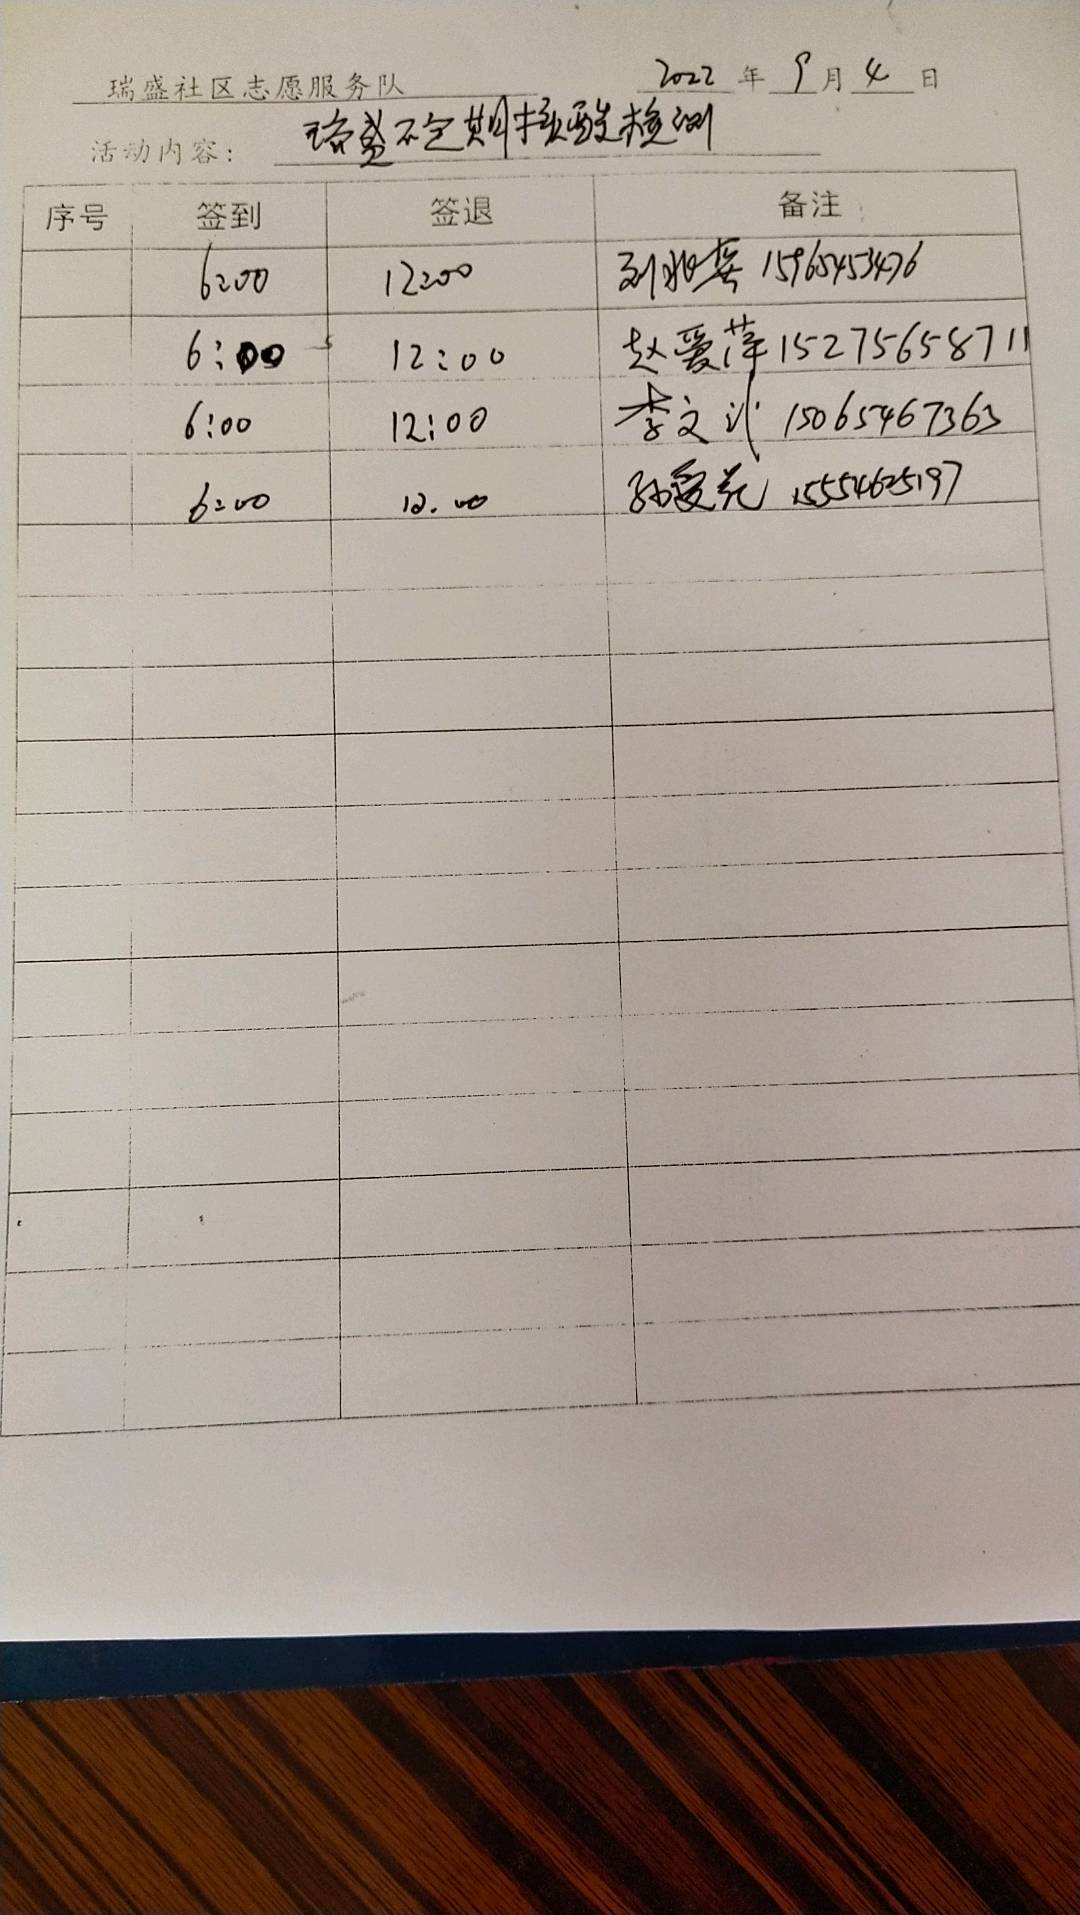 瑞盛社区志愿服务队 2022年9月4日
活动内容: 珞盛不定期核酸检测
序号 签到 签退 备注
6:00 12:00 刘 15965453476
6:00 12:00 赵爱萍 15275658711
6:00 12:00 李文 15065467363
6:00 12:00 孙爱花 15554625197